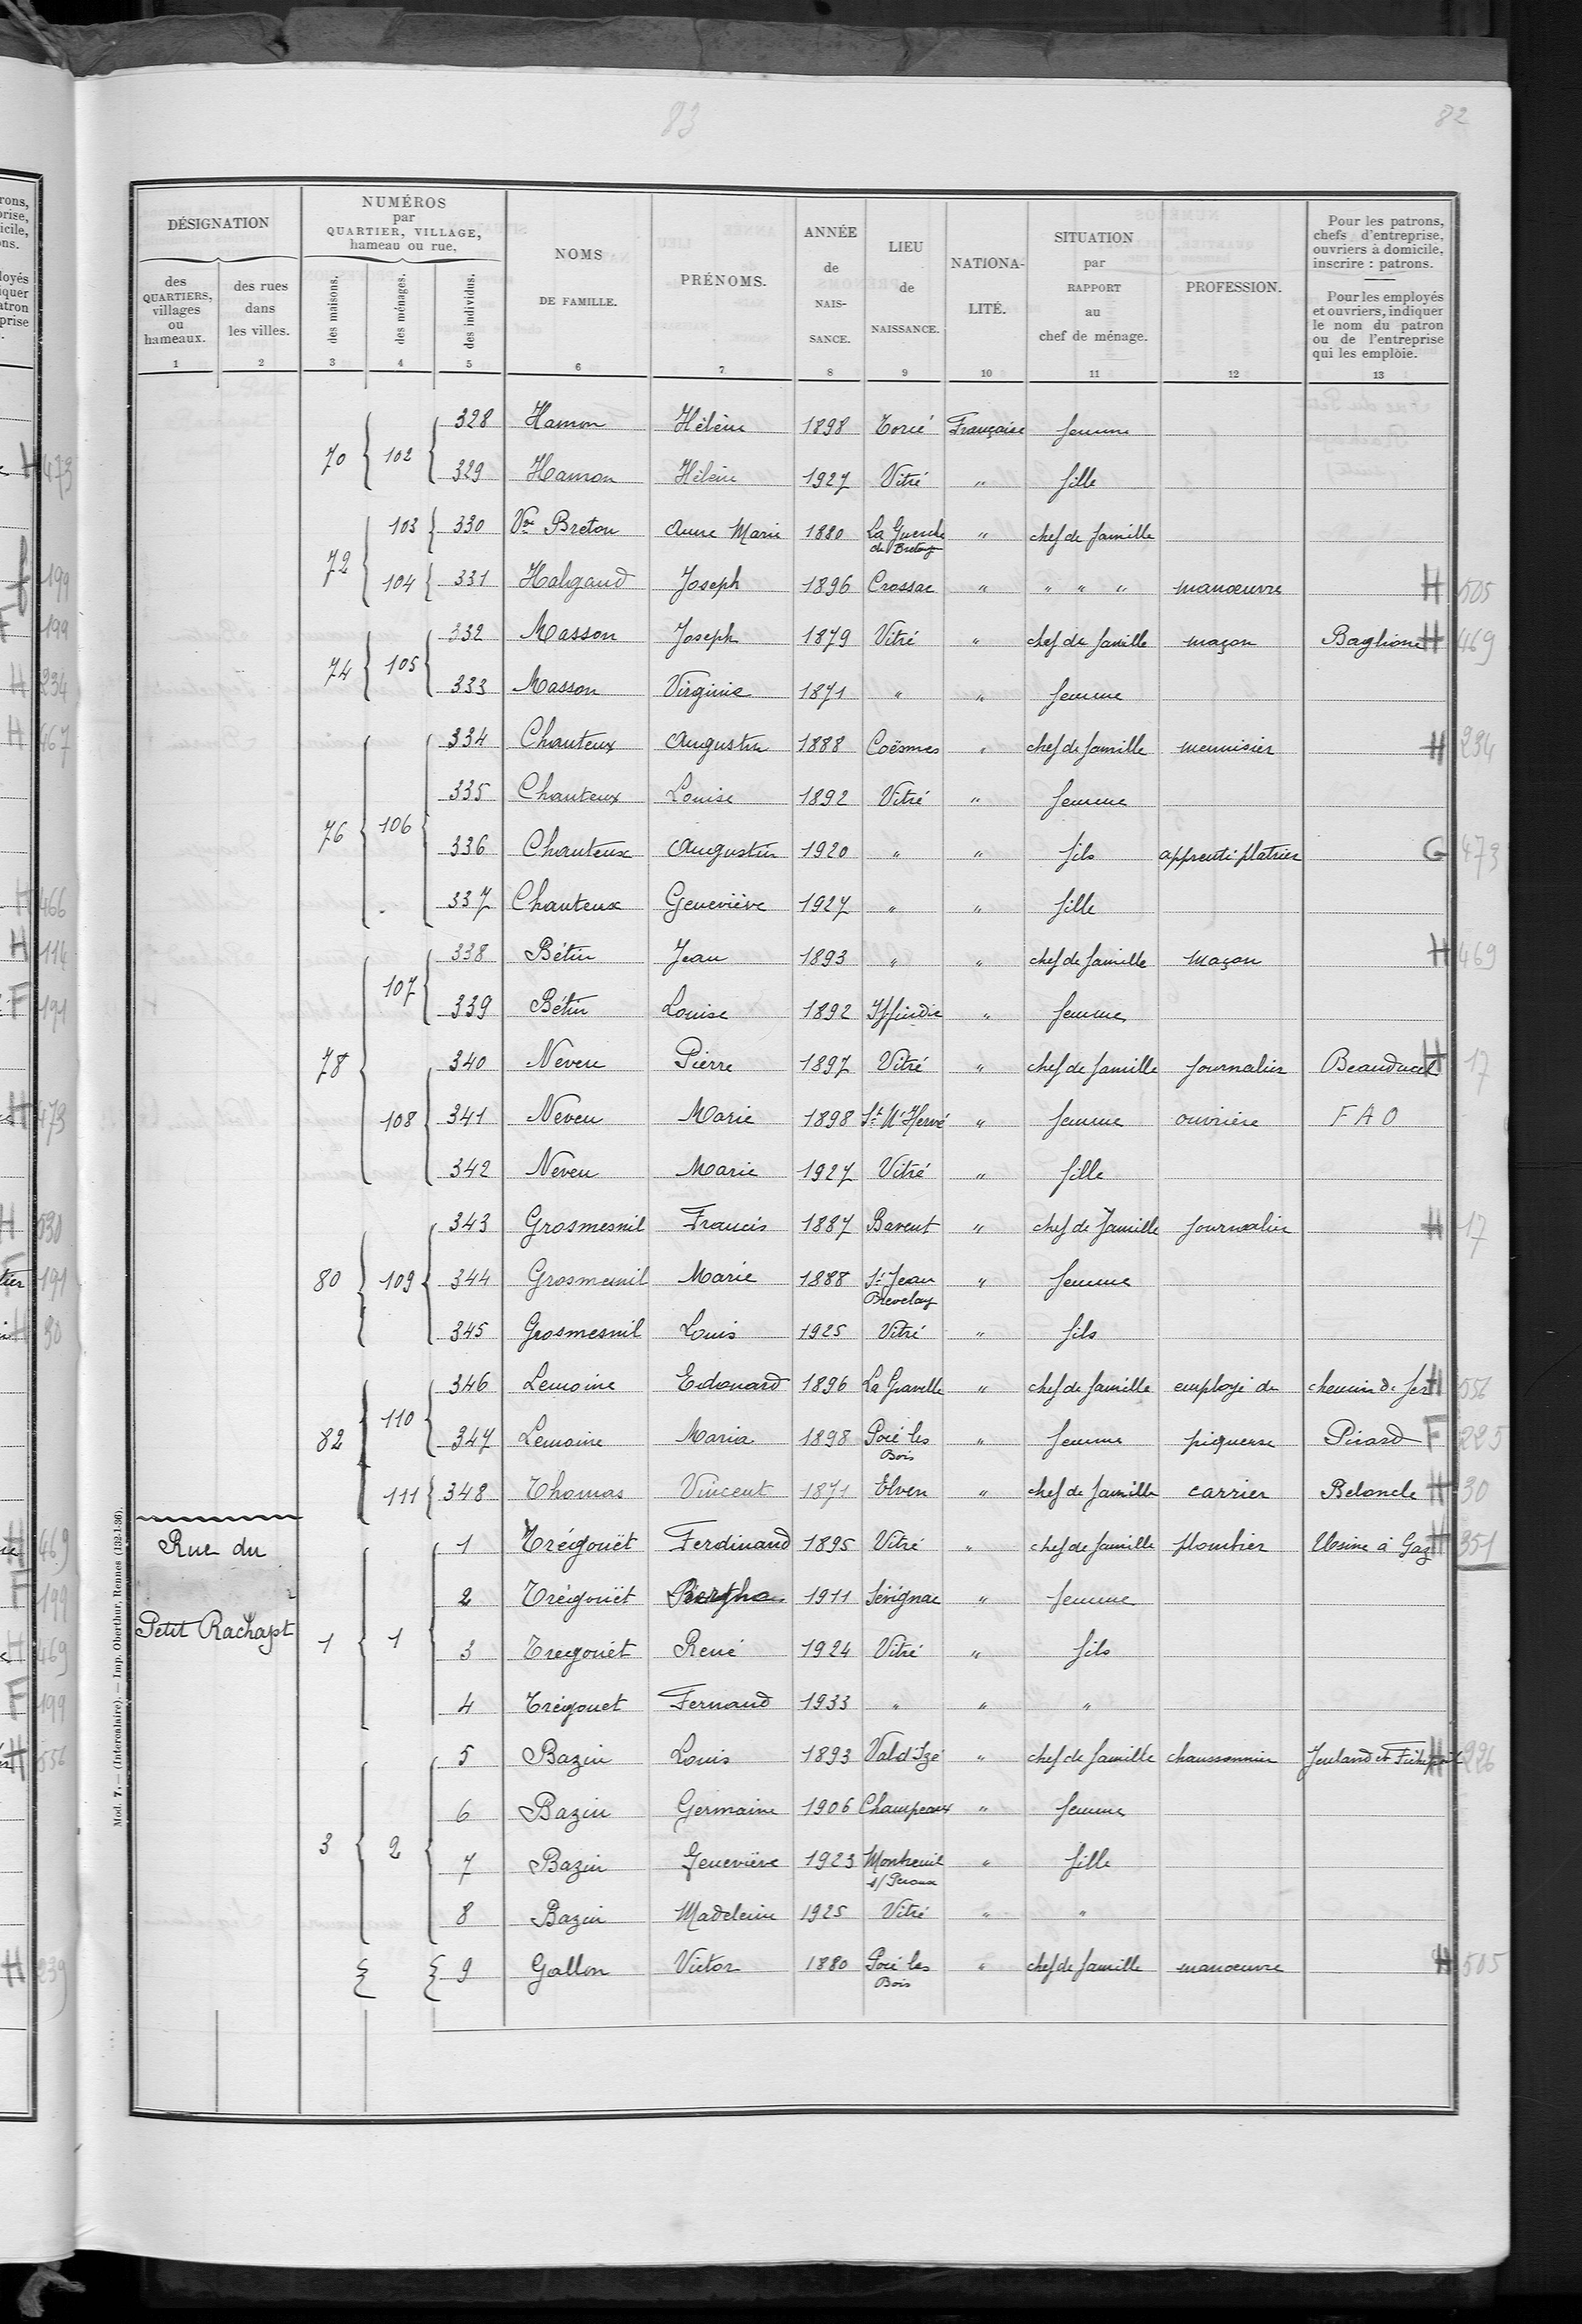 83
82
DÉSIGNATION
des QUARTIERS, villages ou hameaux.
des rues dans les villes.
NUMÉROS par QUARTIER, VILLAGE, hameau ou rue.
des maisons.
des ménages.
des individus.
NOMS DE FAMILLE.
PRÉNOMS.
ANNÉE de NAIS-SANCE.
LIEU de NAISSANCE.
NATIONA-LITÉ.
SITUATION par RAPPORT au chef de ménage.
PROFESSION.
Pour les patrons, chefs d'entreprise, ouvriers à domicile, inscrire : patrons.
Pour les employés et ouvriers, indiquer le nom du patron ou de l'entreprise qui les emploie.
1 2 3 4 5 6 7 8 9 10 11 12 13
70 102 328 Hamon Hélène 1898 Torcé Française femme
329 Hamon Hélène 1927 Vitré " fille
72 103 330 Vve Breton Anne Marie 1880 La Guerche de Bretagne " chef de famille
104 331 Haligaud Joseph 1896 Crossac " " " " manœuvre H 505
74 105 332 Masson Joseph 1879 Vitré " chef de famille maçon Baglione H 469
333 Masson Virginie 1871 " " femme
76 106 334 Chanteux Augustin 1888 Coësmes " chef de famille menuisier H 234
335 Chanteux Louise 1892 Vitré " femme
336 Chanteux Augustin 1920 " " fils apprenti platrier G 473
337 Chanteux Geneviève 1927 " " fille
78 107 338 Bétin Jean 1893 " " chef de famille maçon H 469
339 Bétin Louise 1892 Iffindic " femme
108 340 Neveu Pierre 1897 Vitré " chef de famille journalier Beauducel H 17
341 Neveu Marie 1898 St M'Hervé " femme ouvrière F A O
342 Neveu Marie 1927 Vitré " fille
80 109 343 Grosmesnil Francis 1887 Bavent " chef de famille journalier H 17
344 Grosmesnil Marie 1888 St Jean Brevelay " femme
345 Grosmesnil Louis 1925 Vitré " fils
82 110 346 Lemoine Edouard 1896 La Gravelle " chef de famille employé de chemin de fer H 556
347 Lemoine Maria 1898 Pocé les Bois " femme piqueuse Picard F 225
111 348 Thomas Vincent 1871 Elven " chef de famille carrier Beloncle H 30
Rue du Petit Rachapt
1 1 1 Trégouët Ferdinand 1895 Vitré " chef de famille plombier Usine à Gaz H 351
2 Trégouët Bertha 1911 Sévignac " femme
3 Tregouët René 1924 Vitré " fils
4 Trégouet Fernand 1933 " " "
3 2 5 Bazin Louis 1893 Val d'Izé " chef de famille chaussonnier Jeuland et H 226
6 Bazin Germaine 1906 Champeaux " femme
7 Bazin Geneviève 1923 Montreuil s/ Perouse " fille
8 Bazin Madeleine 1925 Vitré " "
9 Gallon Victor 1880 Pocé les Bois " chef de famille manœuvre H 505
Mod. 7. — (Intercalaire). — Imp. Oberthur, Rennes (132-1-36).